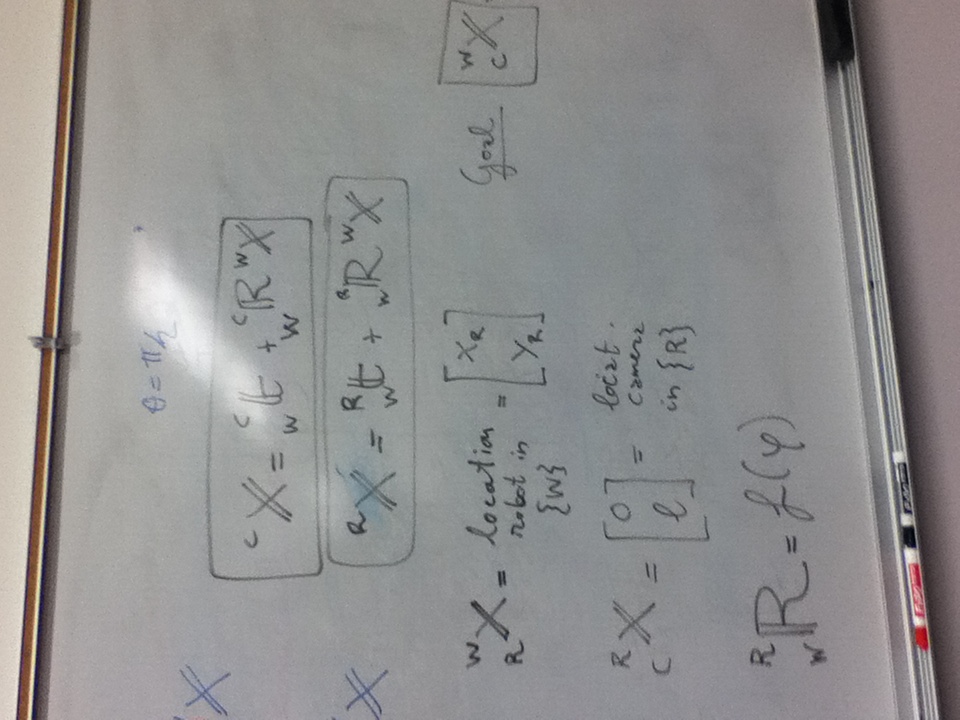 θ = π/2
X
ᶜX = ᶜ_W t + ᶜ_W R ᵂX
X
ᴿX = ᴿ_W t + ᴿ_W R ᵂX
ᵂ_R X = location robot in {W} = [X_R Y_R]
Goal ᵂ_C X
ᴿ_C X = [0 l] = locat. camera in {R}
ᴿ_W R = f(φ)
EXPO
EXPO